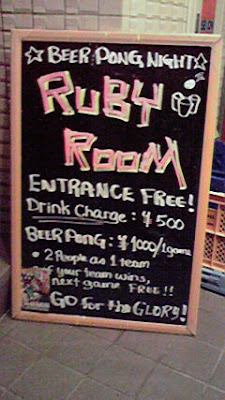 ☆ BEER PONG NIGHT ☆
RUBY
ROOM
ENTRANCE FREE!
Drink Charge : ¥ 500
BEER PONG : ¥ 1000/1game
• 2 People as 1 team
if your team wins,
next game FREE!!
GO for the GLORY!